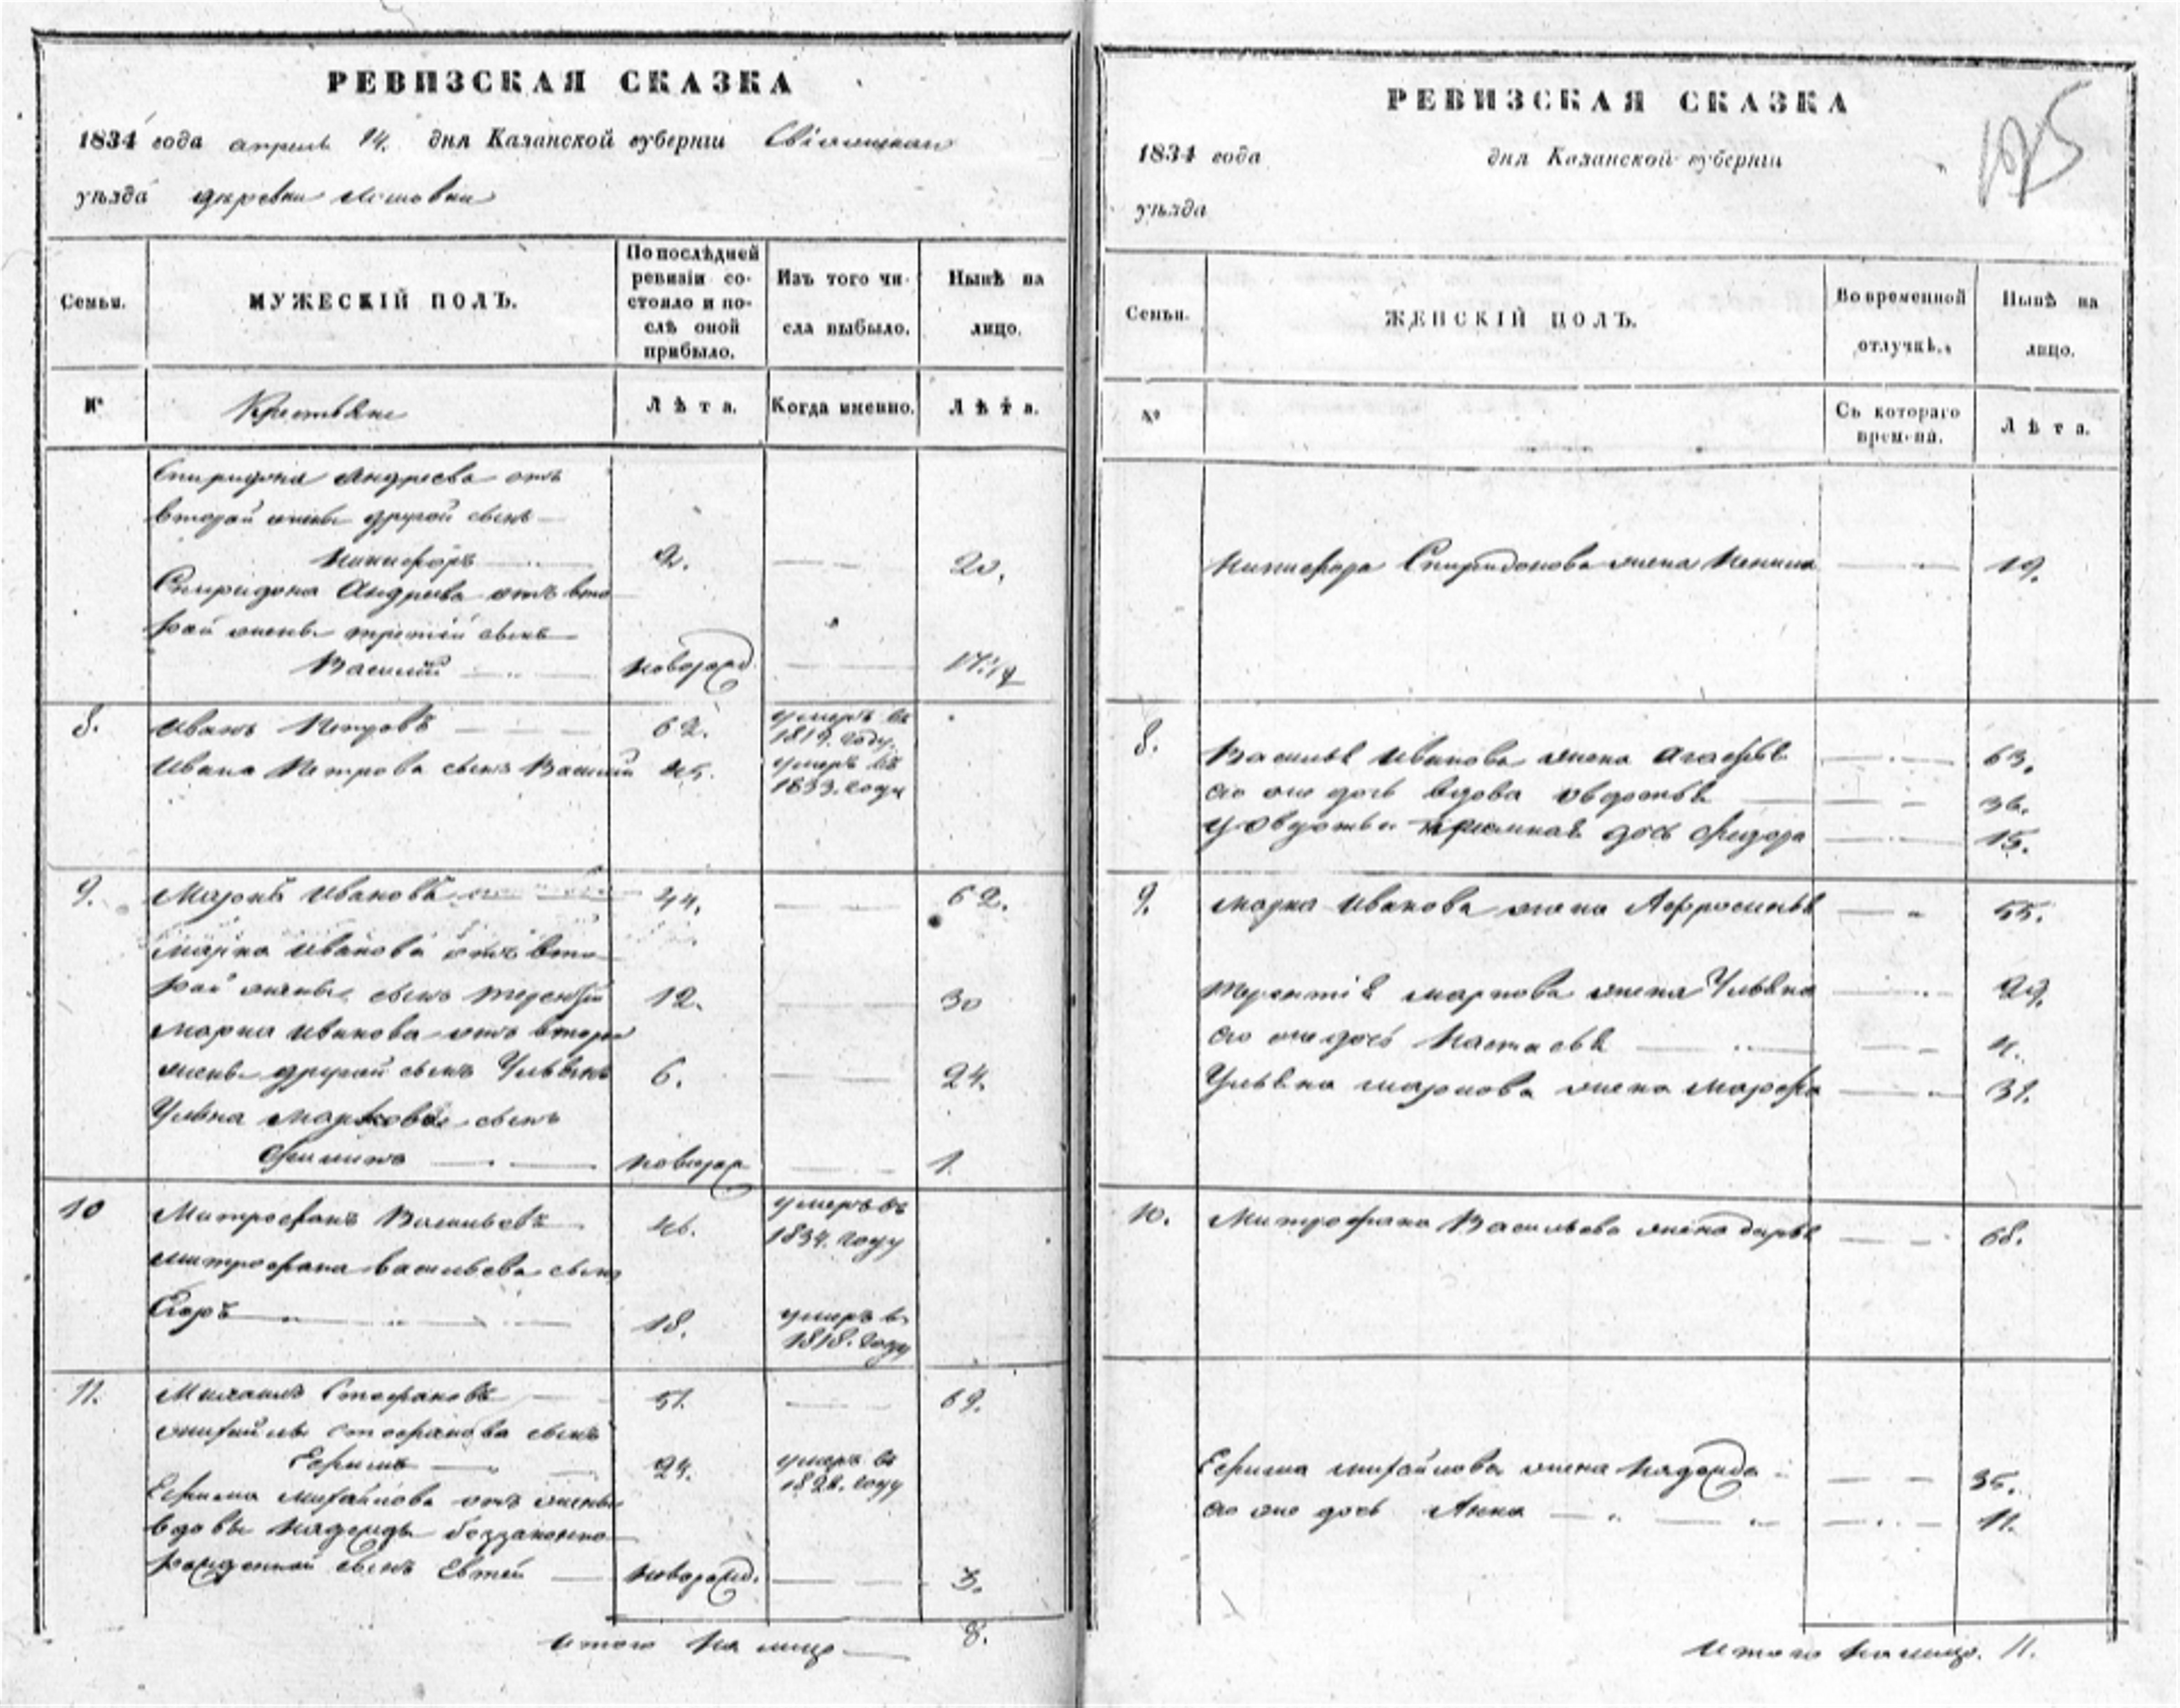 РЕВИЗСКАЯ СКАЗКА
1834 года апреля 14. дня Казанской губернiи
уѣзда деревни
Семьи.
МУЖЕСКIЙ ПОЛЪ.
По послѣдней
ревизiи со-
стояло и по-
слѣ оной
прибыло.
Изъ того чи-
сла выбыло.
Нынѣ на
лицо.
№
Крестьяне
Лѣта.
Когда именно.
Лѣта.
Спиридона Андреева отъ
второй жены другой сынъ
Никифоръ 2. 20.
Спиридона Андреева отъ вто
рой жены третiй сынъ
Василiй новорожд. 17
8. Иванъ Петровъ 62. умеръ въ
1819. году.
Ивана Петрова сынъ Василiй 45. умеръ въ
1833. году
9. Маркъ Ивановъ 44. 62.
Марка Иванова отъ вто
рой жены сынъ Терентiй 12. 30
Марка Иванова отъ второй
жены другой сынъ Ульянъ 6. 24.
Ульяна Маркова сынъ
Филипъ новорож 1.
10 Митрофанъ Васильевъ 46. умеръ въ
1834. году
Митрофана Васильева сынъ
Егоръ 18. умеръ въ
1818. году
11. Михаилъ Стефановъ 51. 69.
Михайлы Стефанова сынъ
Ефимъ 24. умеръ въ
году
Ефима Михайлова отъ жены
вдовы Надежды беззаконно
рожденной сынъ Евтей новорожд. 3.
Итого на лицо 8.
РЕВИЗСКАЯ СКАЗКА
1834 года дня Казанской губернiи
уѣзда
Семьи.
ЖЕНСКIЙ ПОЛЪ.
Во временной
отлучкѣ.
Нынѣ на
лицо.
№
Съ котораго
времени.
Лѣта.
Никифора Спиридонова жена 19.
8. Василья Иванова жена Агафья 63.
его же дочь вдова Овдотья 36.
у Овдотьи приемная дочь Федора 15.
9. Марка Иванова жена Афросинья 55.
Терентiя Маркова жена Ульяна 29.
его же дочь Настасья 4.
Ульяна Маркова жена Марфа 31.
10. Митрофана Васильева жена Дарья 68.
Ефима Михайлова жена Надежда 35.
его же дочь Анна 11.
Итого на лицо. 11.